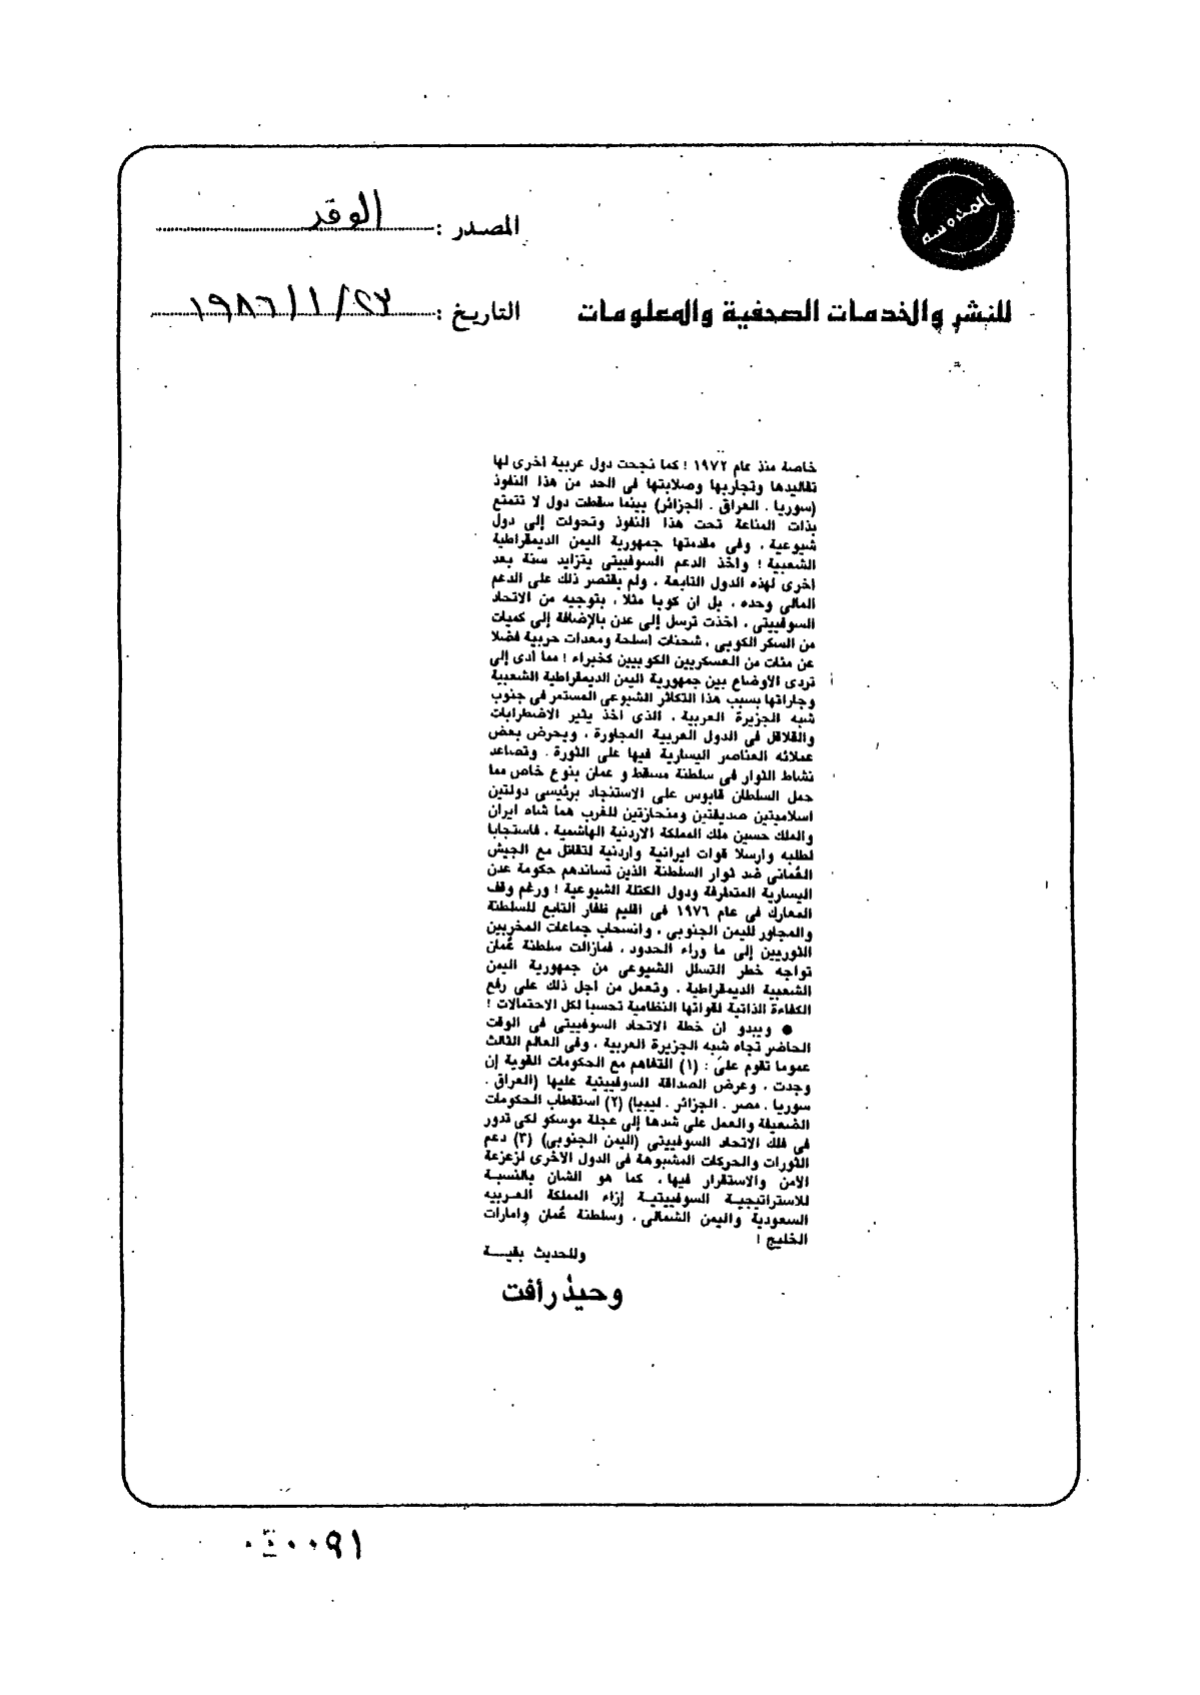 المحروسه
المصدر : الوفد
للنشر والخدمات الصحفية والمعلومات
التاريخ : ٢٣ / ١ / ١٩٨٦
خاصة منذ عام ١٩٧٢ ! كما نجحت دول عربية أخرى لها
تقاليدها وتجاربها وصلابتها فى الحد من هذا النفوذ
(سوريا . العراق . الجزائر) بينما سقطت دول لا تتمتع
بذات المناعة تحت هذا النفوذ وتحولت إلى دول
شيوعية ، وفى مقدمتها جمهورية اليمن الديمقراطية
الشعبية ! وأخذ الدعم السوفييتى يتزايد سنة بعد
أخرى لهذه الدول التابعة ، ولم يقتصر ذلك على الدعم
المالى وحده ، بل ان كوبا مثلا ، بتوجيه من الاتحاد
السوفييتى ، أخذت ترسل إلى عدن بالإضافة إلى كميات
من السكر الكوبى ، شحنات أسلحة ومعدات حربية فضلا
عن مئات من العسكريين الكوبيين كخبراء ! مما أدى إلى
تردى الأوضاع بين جمهورية اليمن الديمقراطية الشعبية
وجاراتها بسبب هذا التكاثر الشيوعى المستمر فى جنوب
شبه الجزيرة العربية ، الذى أخذ يثير الاضطرابات
والقلاقل فى الدول العربية المجاورة ، ويحرض بعض
عملائه العناصر اليسارية فيها على الثورة . وتصاعد
نشاط الثوار فى سلطنة مسقط و عمان بنوع خاص مما
حمل السلطان قابوس على الاستنجاد برئيسى دولتين
اسلاميتين صديقتين ومنحازتين للغرب هما شاه ايران
والملك حسين ملك المملكة الاردنية الهاشمية ، فاستجابا
لطلبه وارسلا قوات ايرانية واردنية لتقاتل مع الجيش
العُمانى ضد ثوار السلطنة الذين تساندهم حكومة عدن
اليسارية المتطرفة ودول الكتلة الشيوعية ! ورغم وقف
المعارك فى عام ١٩٧٦ فى اقليم ظفار التابع للسلطنة
والمجاور لليمن الجنوبى ، وانسحاب جماعات المخربين
الثوريين إلى ما وراء الحدود ، فمازالت سلطنة عُمان
تواجه خطر التسلل الشيوعى من جمهورية اليمن
الشعبية الديمقراطية ، وتعمل من أجل ذلك على رفع
الكفاءة الذاتية لقواتها النظامية تحسبا لكل الاحتمالات !
● ويبدو ان خطة الاتحاد السوفييتى فى الوقت
الحاضر تجاه شبه الجزيرة العربية ، وفى العالم الثالث
عموما تقوم على : (١) التفاهم مع الحكومات القوية إن
وجدت ، وعرض الصداقة السوفييتية عليها (العراق .
سوريا . مصر . الجزائر . ليبيا) (٢) استقطاب الحكومات
الضعيفة والعمل على شدها إلى عجلة موسكو لكى تدور
فى فلك الاتحاد السوفييتى (اليمن الجنوبى) (٣) دعم
الثورات والحركات المشبوهة فى الدول الأخرى لزعزعة
الأمن والاستقرار فيها، كما هو الشأن بالنسبة
للاستراتيجية السوفييتية إزاء المملكة العربيه
السعودية واليمن الشمالى ، وسلطنة عُمان وإمارات
الخليج !
وللحديث بقيـــة
وحيد رأفت